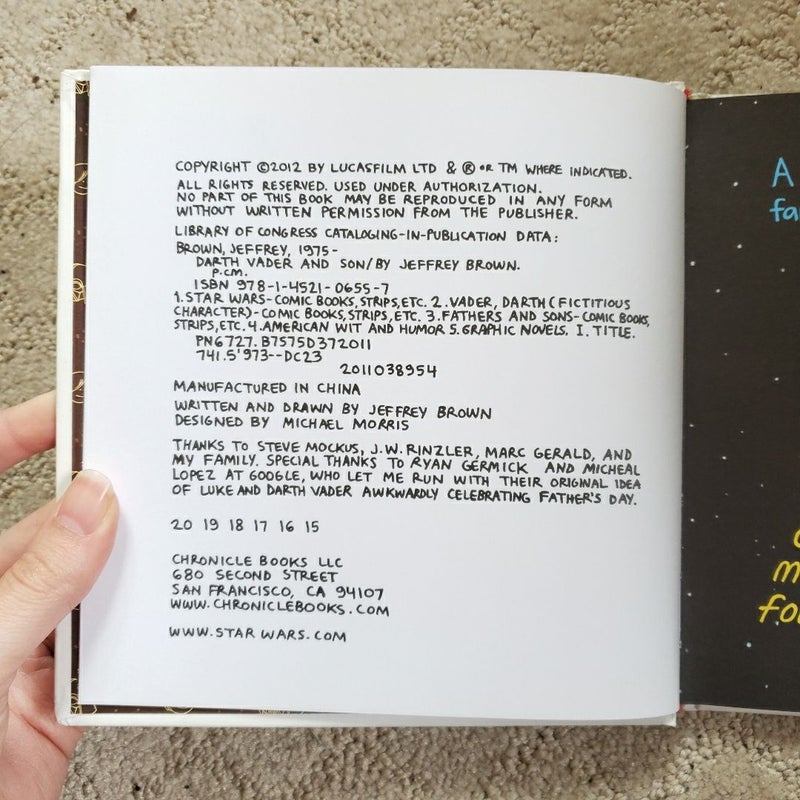 COPYRIGHT ©2012 BY LUCASFILM LTD & ® OR TM WHERE INDICATED.
ALL RIGHTS RESERVED. USED UNDER AUTHORIZATION.
NO PART OF THIS BOOK MAY BE REPRODUCED IN ANY FORM
WITHOUT WRITTEN PERMISSION FROM THE PUBLISHER.
LIBRARY OF CONGRESS CATALOGING-IN-PUBLICATION DATA:
BROWN, JEFFREY, 1975-
DARTH VADER AND SON/BY JEFFREY BROWN.
P.CM.
ISBN 978-1-4521-0655-7
1.STAR WARS-COMIC BOOKS,STRIPS,ETC. 2.VADER, DARTH (FICTITIOUS
CHARACTER)-COMIC BOOKS,STRIPS, ETC. 3.FATHERS AND SONS-COMIC BOOKS,
STRIPS,ETC. 4.AMERICAN WIT AND HUMOR 5.GRAPHIC NOVELS. I. TITLE.
PN6727.B7575D372011
741.5'973--DC23
2011038954
MANUFACTURED IN CHINA
WRITTEN AND DRAWN BY JEFFREY BROWN
DESIGNED BY MICHAEL MORRIS
THANKS TO STEVE MOCKUS, J.W. RINZLER, MARC GERALD, AND
MY FAMILY. SPECIAL THANKS TO RYAN GERMICK AND MICHEAL
LOPEZ AT GOOGLE, WHO LET ME RUN WITH THEIR ORIGINAL IDEA
OF LUKE AND DARTH VADER AWKWARDLY CELEBRATING FATHER'S DAY.
20 19 18 17 16 15
CHRONICLE BOOKS LLC
680 SECOND STREET
SAN FRANCISCO, CA 94107
WWW.CHRONICLEBOOKS.COM
WWW.STARWARS.COM
A
fa
m
fo